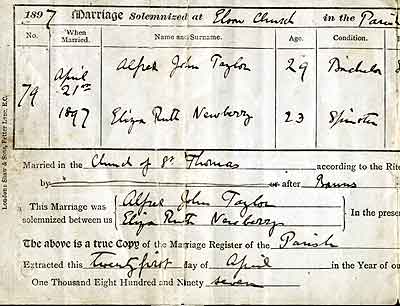 1897 Marriage Solemnized at Elson Church in the Parish
No. When Married. Name and Surname. Age. Condition.
79 April 21st 1897 Alfred John Taylor 29 Bachelor
Eliza Ruth Newberry 23 Spinster
Married in the Church of St Thomas according to the Rite
by or after Banns
This Marriage was solemnized between us Alfred John Taylor
Eliza Ruth Newberry In the prese
The above is a true Copy of the Marriage Register of the Parish
Extracted this twenty first day of April in the Year of ou
One Thousand Eight Hundred and Ninety seven
London: Shaw & Sons, Fetter Lane, E.C.